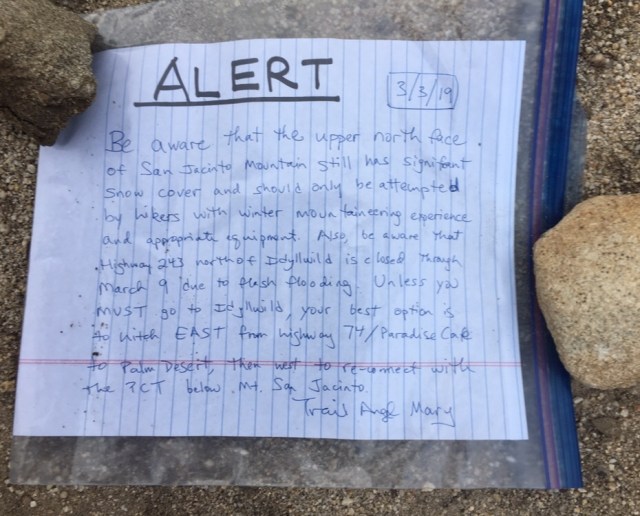 ALERT
3/3/19
Be aware that the upper north face
of San Jacinto Mountain still has signifant
snow cover and should only be attempted
by hikers with winter mountaineering experience
and appropriate equipment. Also, be aware that
Highway 243 north of Idyllwild is closed through
March 9 due to flash flooding. Unless you
MUST go to Idyllwild, your best option is
to hitch EAST from highway 74/Paradise Cafe
to Palm Desert, then west to re-connect with
the PCT below Mt. San Jacinto.
Trail Angl Mary